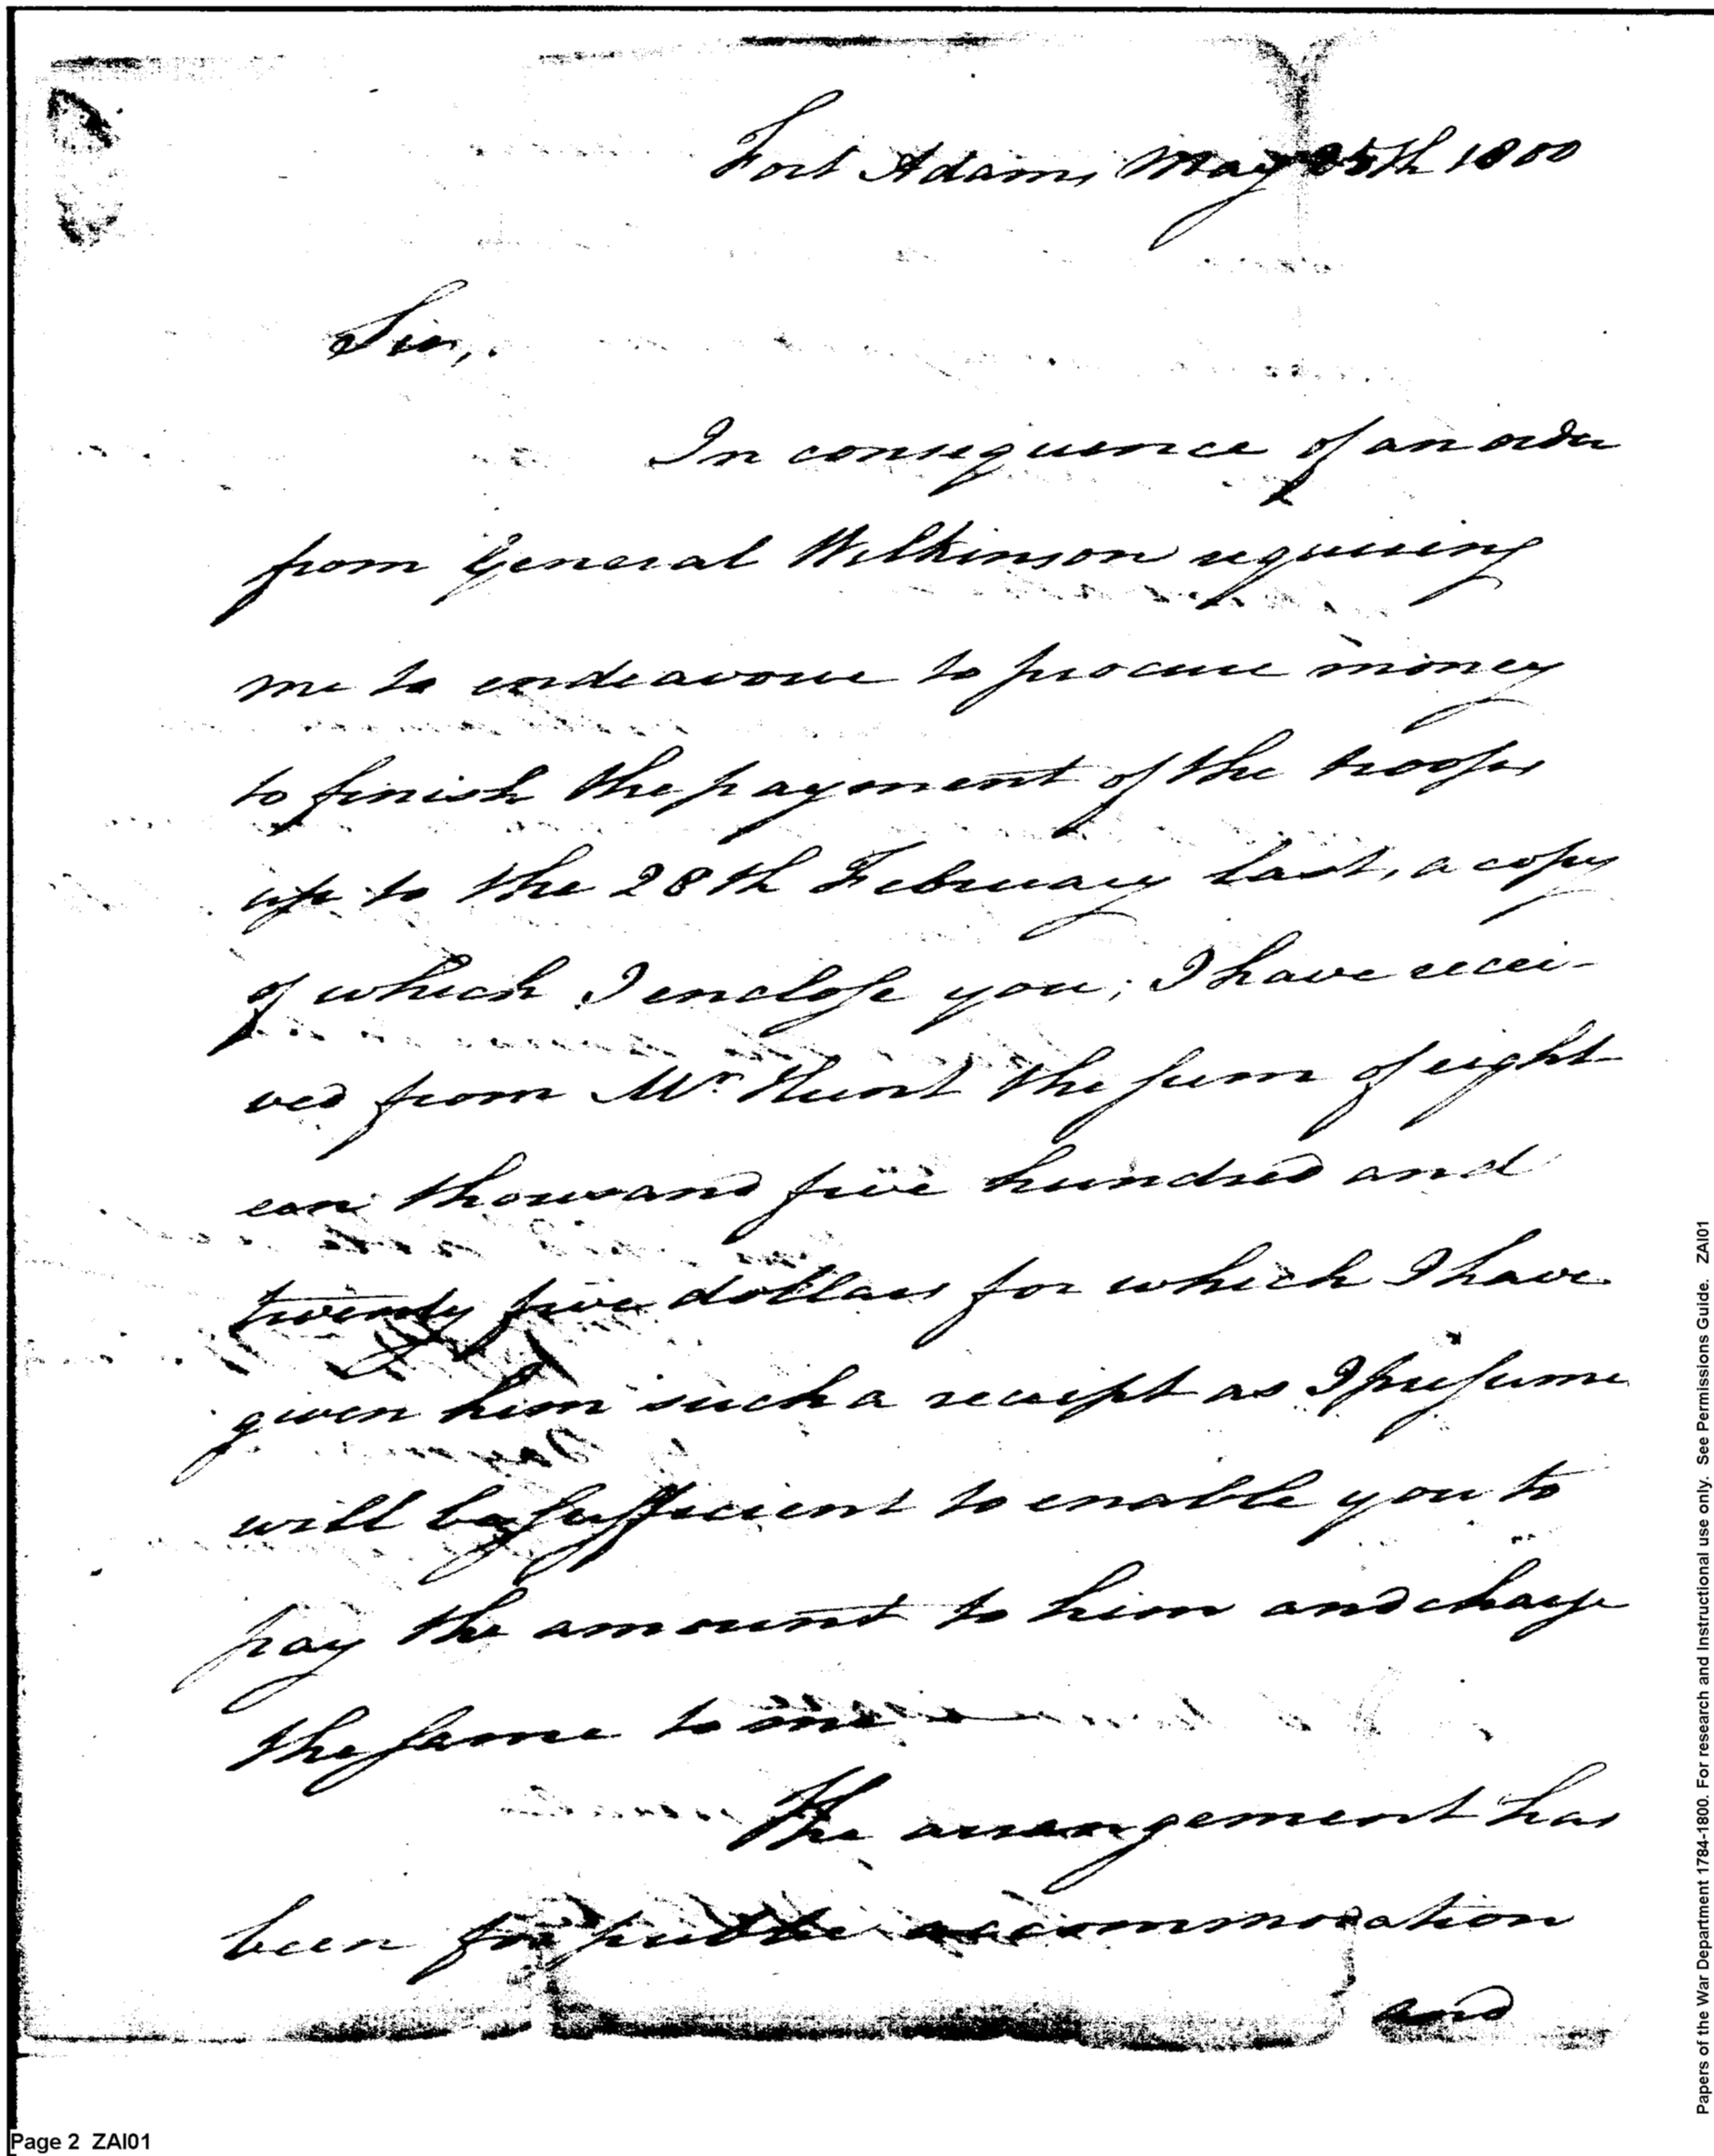 Fort Adams May 25th 1800
Sir,
In consequence of an order
from General Wilkinson requiring
me to endeavour to procure money
to finish the payment of the troops
up to the 28th February last, a copy
of which I enclose you; I have recei-
ved from Mr. Hunt the sum of eight
een thousand five hundred and
twenty five dollars for which I have
given him such a receipt as I presume
will be sufficient to enable you to
pay the amount to him and charge
the same to me
The arrangement has
been for public accommodation
and
Page 2 ZAI01
Papers of the War Department 1784-1800. For research and Instructional use only. See Permissions Guide. ZAI01